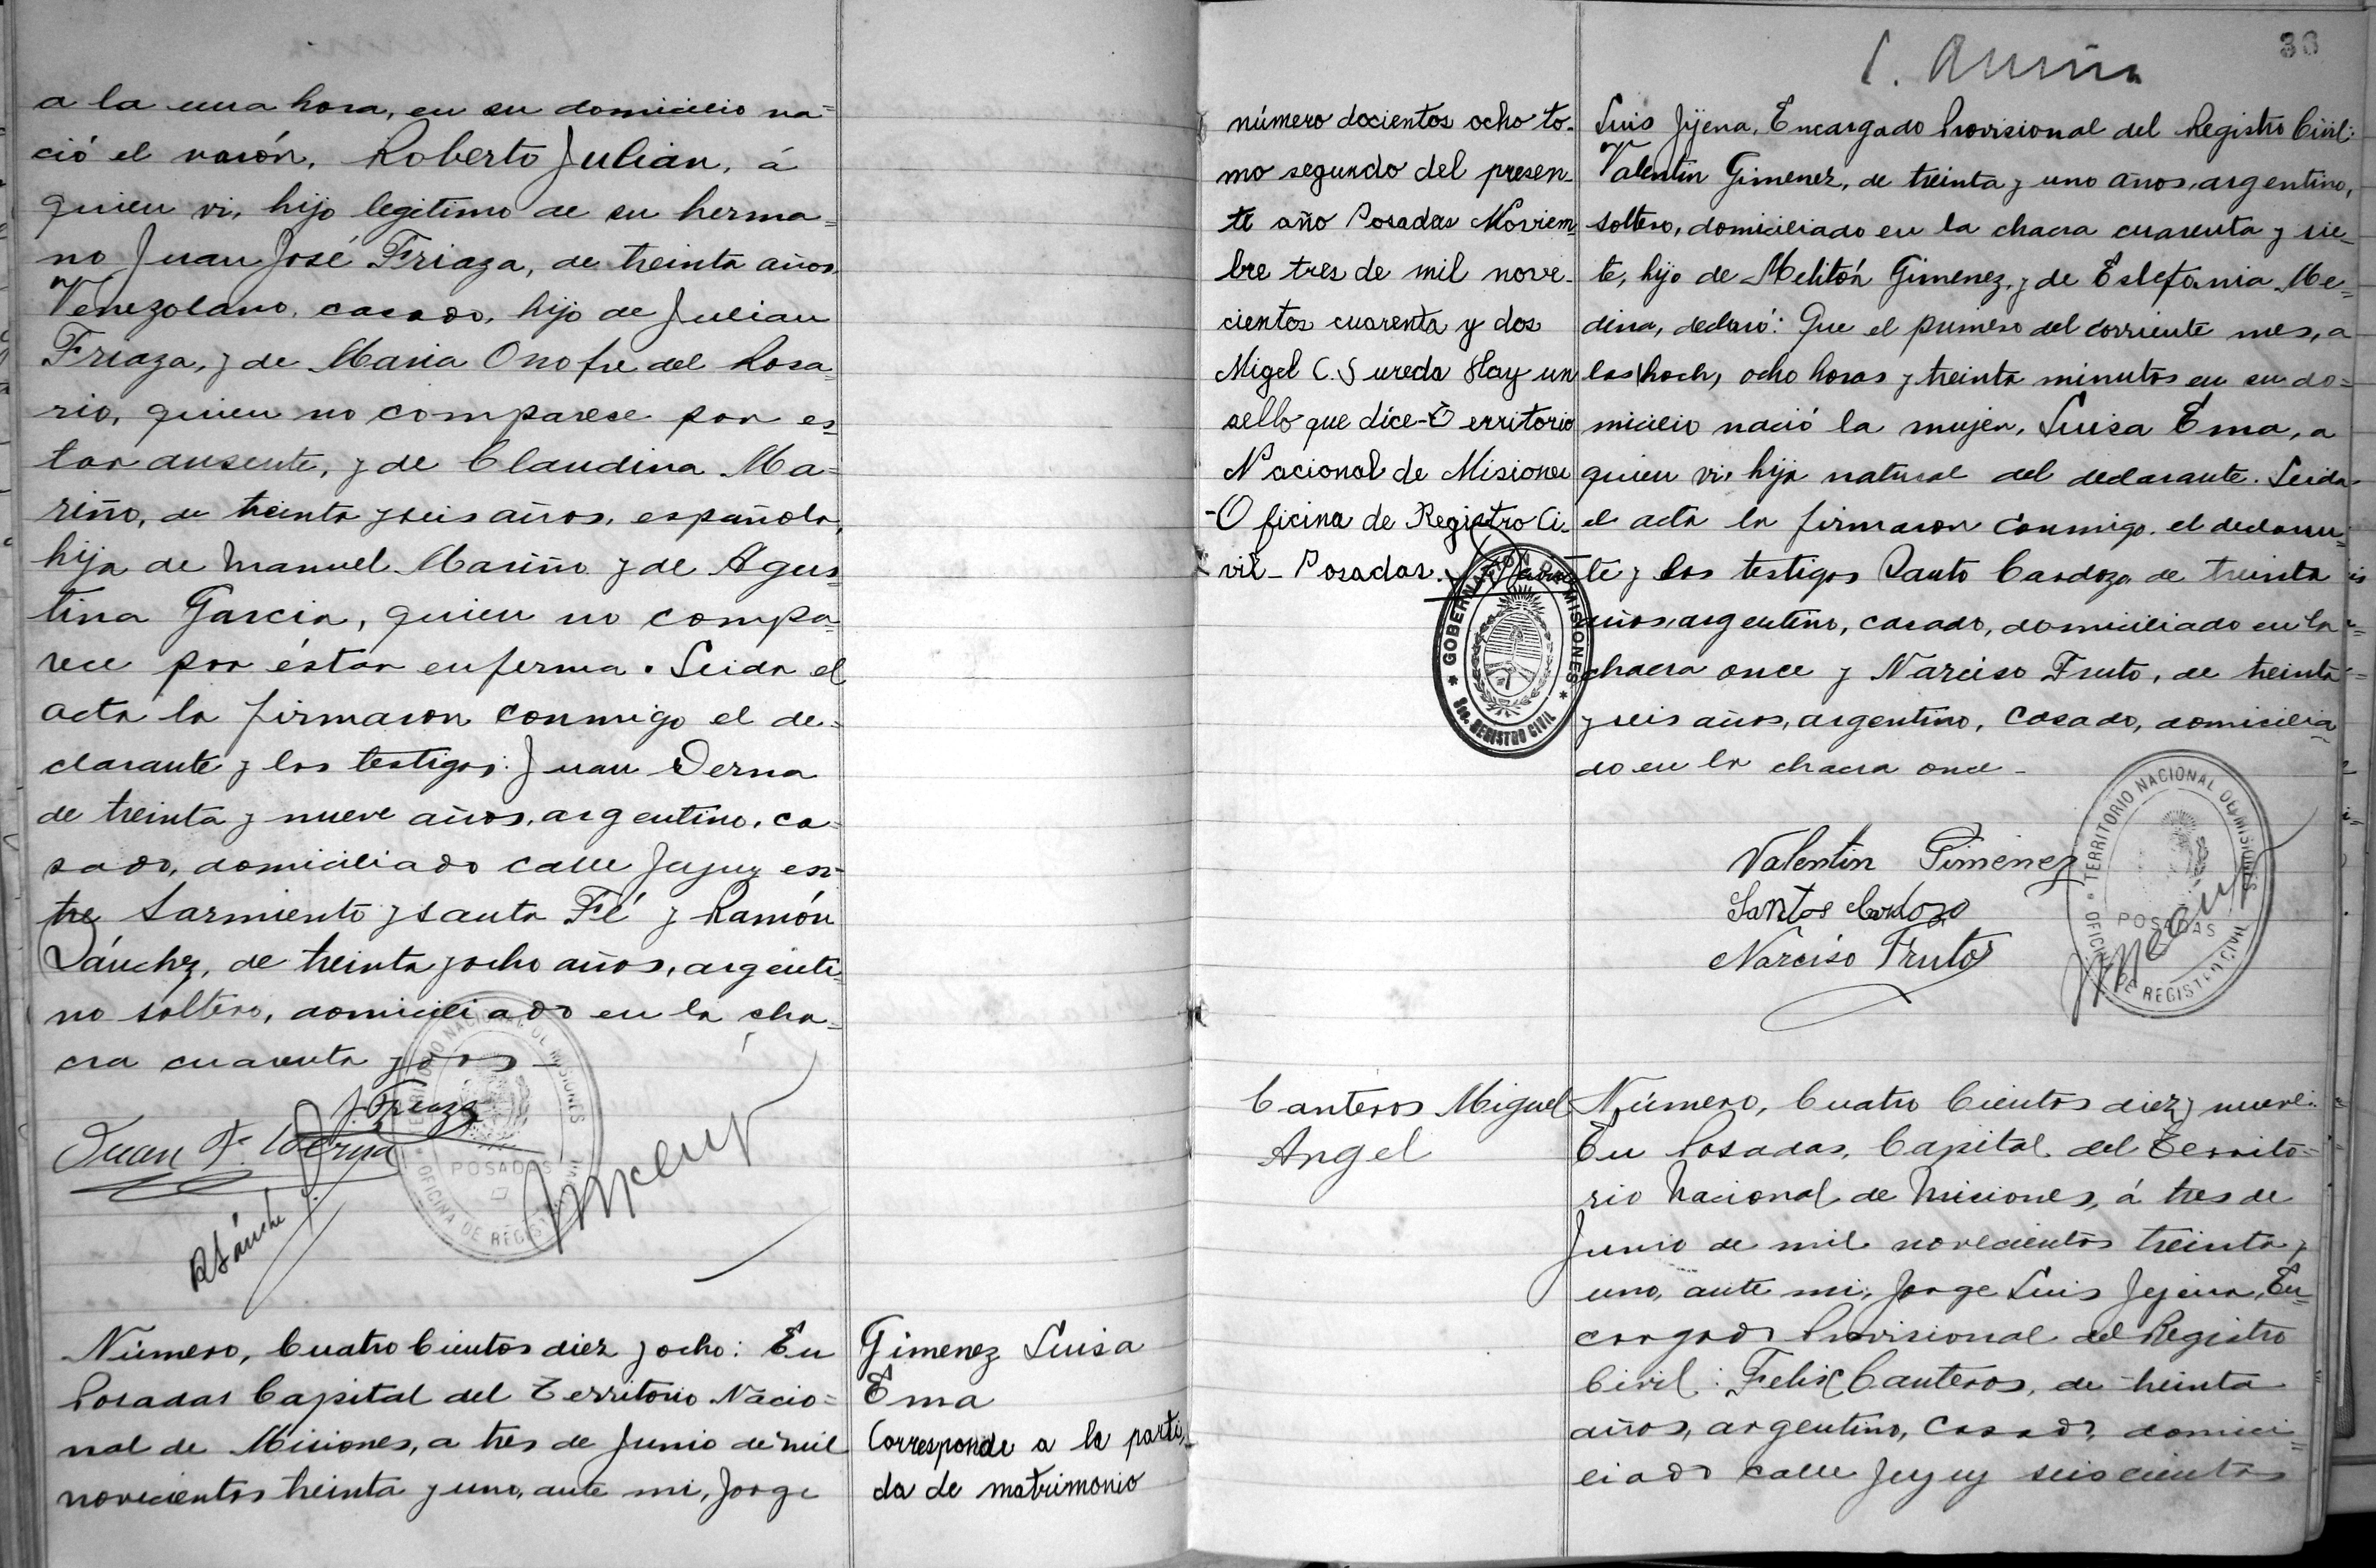 a la una hora, en su domicilio na=
ció el varón, Roberto Julian, á
quien vi, hijo legitimo de su herma=
no Juan José Friaza, de treinta años,
Venezolano, casado, hijo de Julian
Friaza, y de Maria Onofre del Rosa=
rio, quien no comparese por es=
tar ausente, y de Claudina Ma=
riño, de treinta y seis años, española,
hija de Manuel Mariño y de Agus=
tina Garcia, quien no compa=
rece por éstar enferma. Leida el
acta la firmaron conmigo el de=
clarante y los testigos: Juan Derna
de treinta y nueve años, argentino, ca=
sado, domiciliado calle Jujuy en=
tre Sarmiento y Santa Fé y Ramón
Sánchez, de treinta y ocho años, argenti=
no soltero, domiciliado en la cha=
cra cuarenta y dos—
J. Friaza
Juan F. Derna
R Sánchez
TERRITORIO NACIONAL DE MISIONES
POSADAS
OFICINA DE REGISTRO CIVIL
Número, Cuatro Cientos diez y ocho: En
Posadas Capital del Territorio Nacio=
nal de Misiones, a tres de Junio de mil
novecientos treinta y uno, ante mi, Jorge
Gimenez Luisa
Ema
Corresponde a la parti-
da de matrimonio
38
número docientos ocho to-
mo segundo del presen-
te año Posadas Noviem-
bre tres de mil nove-
cientos cuarenta y dos
Migel C. Sureda Hay un
sello que dice-Territorio
Nacional de Misiones
-Oficina de Registro Ci-
vil- Posadas.
GOBERNACION DE MISIONES
Sec. REGISTRO CIVIL
Luis Jijena, Encargado Provisional del Registro Civil:
Valentin Gimenez, de treinta y uno años, argentino,
soltero, domiciliado en la chacra cuarenta y sie=
te, hijo de Melitón Gimenez, y de Estefania Me=
dina, declaró: Que el primero del corriente mes, a
las ocho horas y treinta minutos en su do=
micilio nació la mujer, Luisa Ema, a
quien vi, hija natural del declarante. Leida
el acta la firmaron conmigo el declaran=
te y los testigos Santo Cardozo de treinta
años, argentino, casado, domiciliado en la
chacra once y Narciso Fruto, de treinta
y seis años, argentino, casado, domicilia=
do en la chacra once-
Valentin Gimenez
Santos Cardozo
Narciso Frutos
TERRITORIO NACIONAL DE MISIONES
POSADAS
OFICINA DE REGISTRO CIVIL
Canteros Miguel
Angel
Número, Cuatro Cientos diez y nueve:
En Posadas, Capital del Territo=
rio Nacional de Misiones, á tres de
Junio de mil novecientos treinta y
uno, ante mi, Jorge Luis Jijena, En=
cargado Provisional del Registro
Civil: Felix Canteros, de treinta
años, argentino, casado, domici=
liado calle Jujuy seiscientos